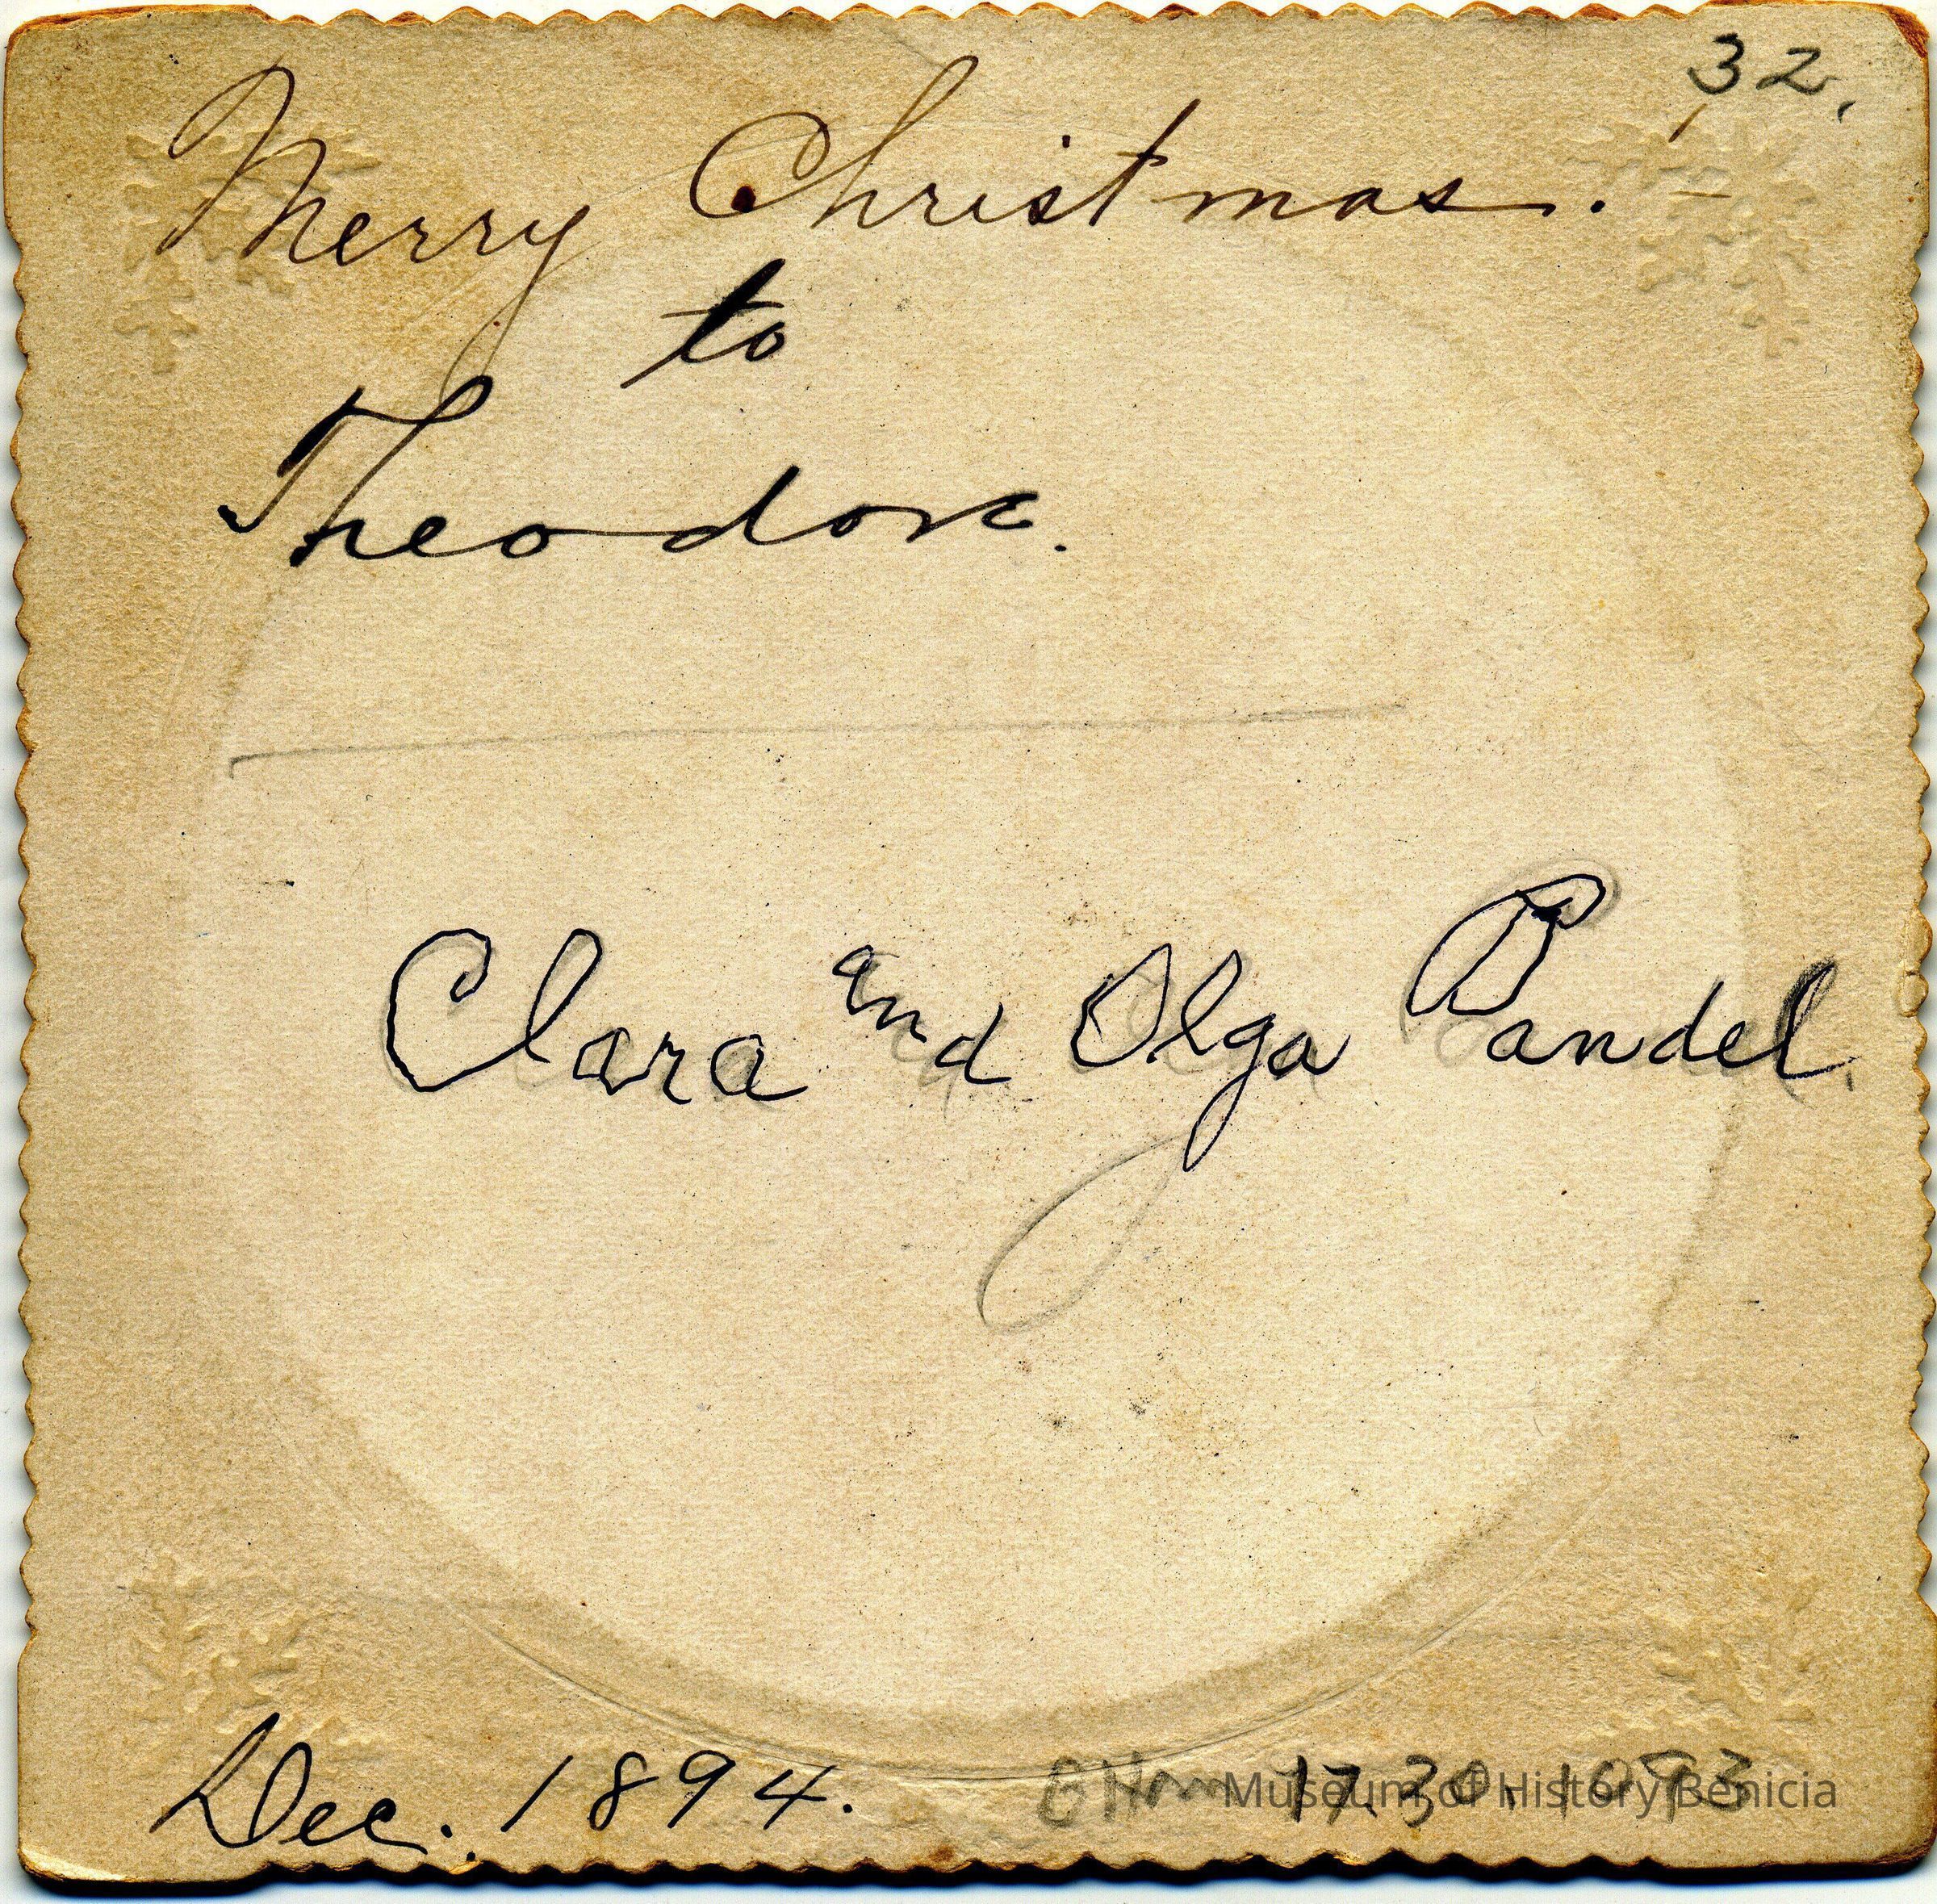 32.
Merry Christmas.
to
Theodore.
Clara and Olga Pandel
Dec. 1894.
Museum of History Benicia